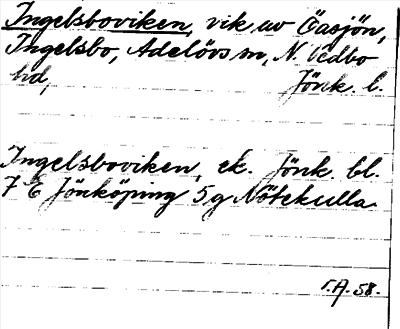 Ingelsboviken, vik av Öasjön,
Ingelsbo, Adelövs sn, N. Vedbo
hd, Jönk. l.
Ingelsboviken, ek. Jönk. bl.
7 E Jönköping 5 g Nötekulla
r.A. 58.